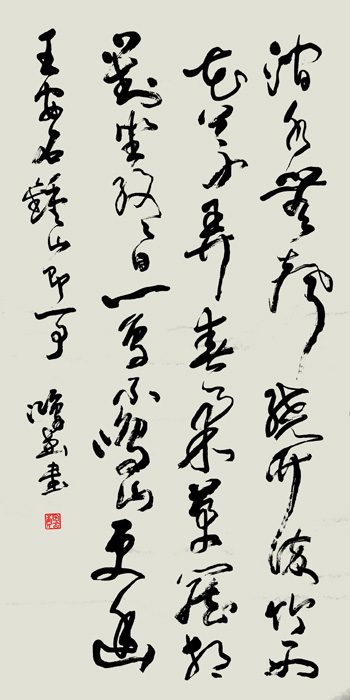 澗水無聲繞竹流竹西
花草弄春柔茅簷相
對坐終日一鳥不鳴山更幽
王安石鍾山即事 書